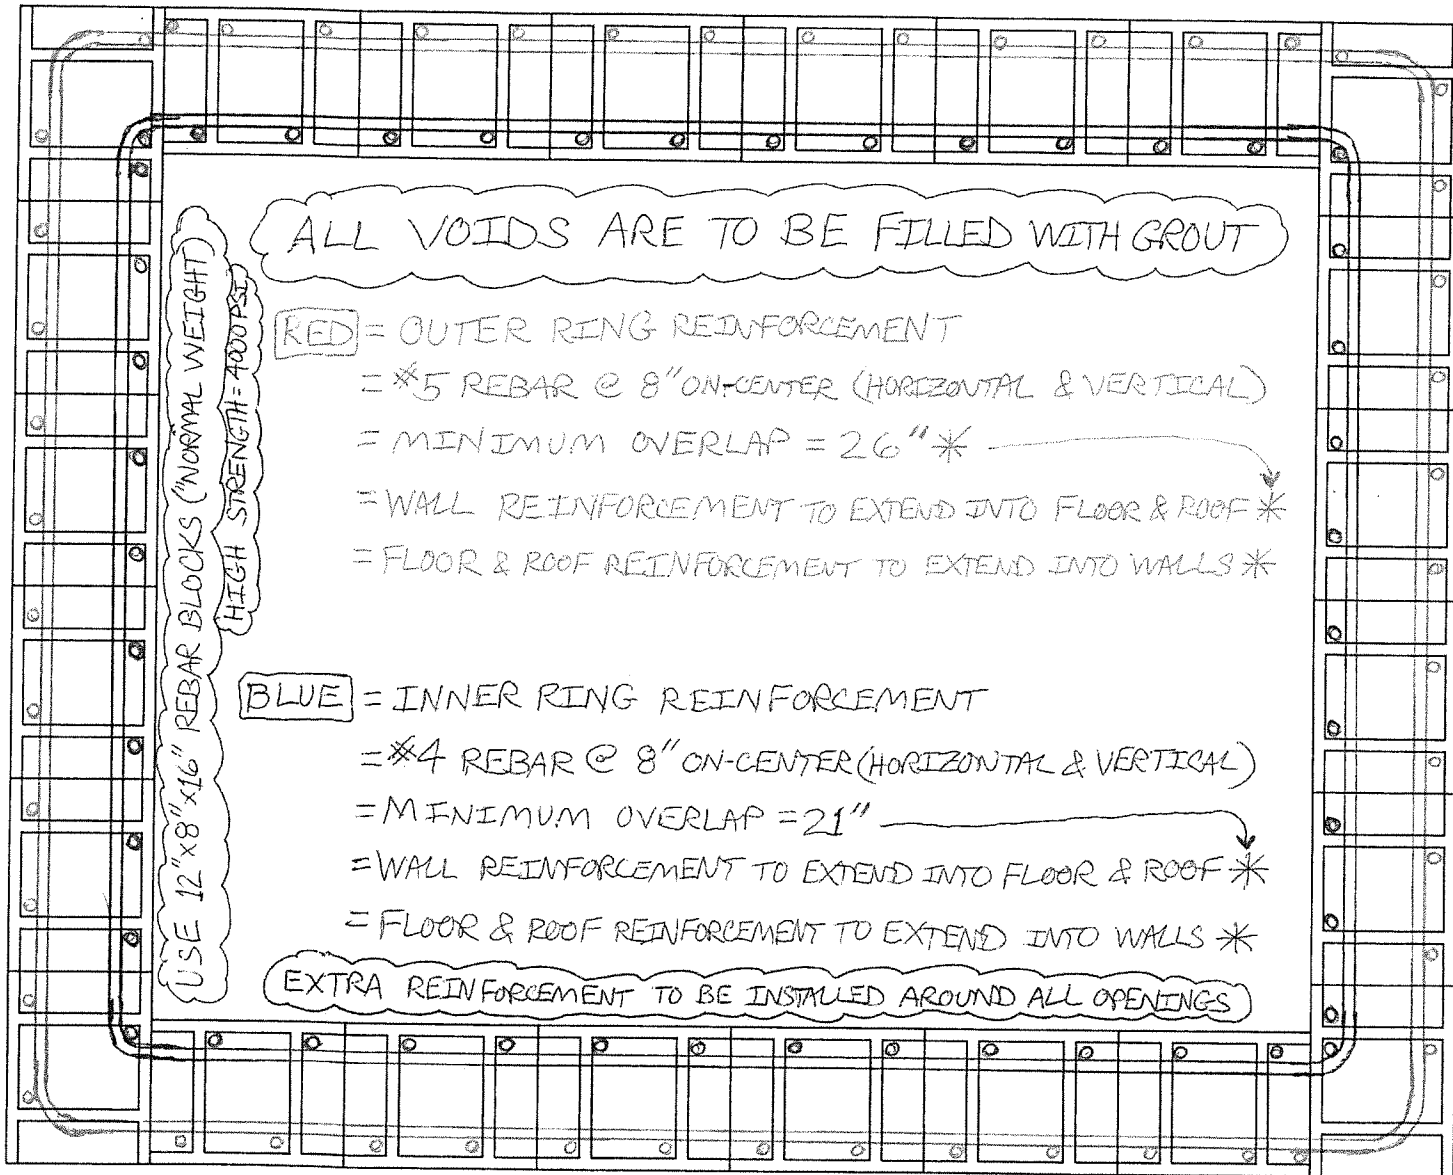 ALL VOIDS ARE TO BE FILLED WITH GROUT
USE 12"x8"x16" REBAR BLOCKS ("NORMAL WEIGHT)
HIGH STRENGTH=4000 PSI
RED = OUTER RING REINFORCEMENT
= #5 REBAR @ 8" ON-CENTER (HORIZONTAL & VERTICAL)
= MINIMUM OVERLAP = 26" *
= WALL REINFORCEMENT TO EXTEND INTO FLOOR & ROOF *
= FLOOR & ROOF REINFORCEMENT TO EXTEND INTO WALLS *
BLUE = INNER RING REINFORCEMENT
= #4 REBAR @ 8" ON-CENTER (HORIZONTAL & VERTICAL)
= MINIMUM OVERLAP = 21"
= WALL REINFORCEMENT TO EXTEND INTO FLOOR & ROOF *
= FLOOR & ROOF REINFORCEMENT TO EXTEND INTO WALLS *
EXTRA REINFORCEMENT TO BE INSTALLED AROUND ALL OPENINGS